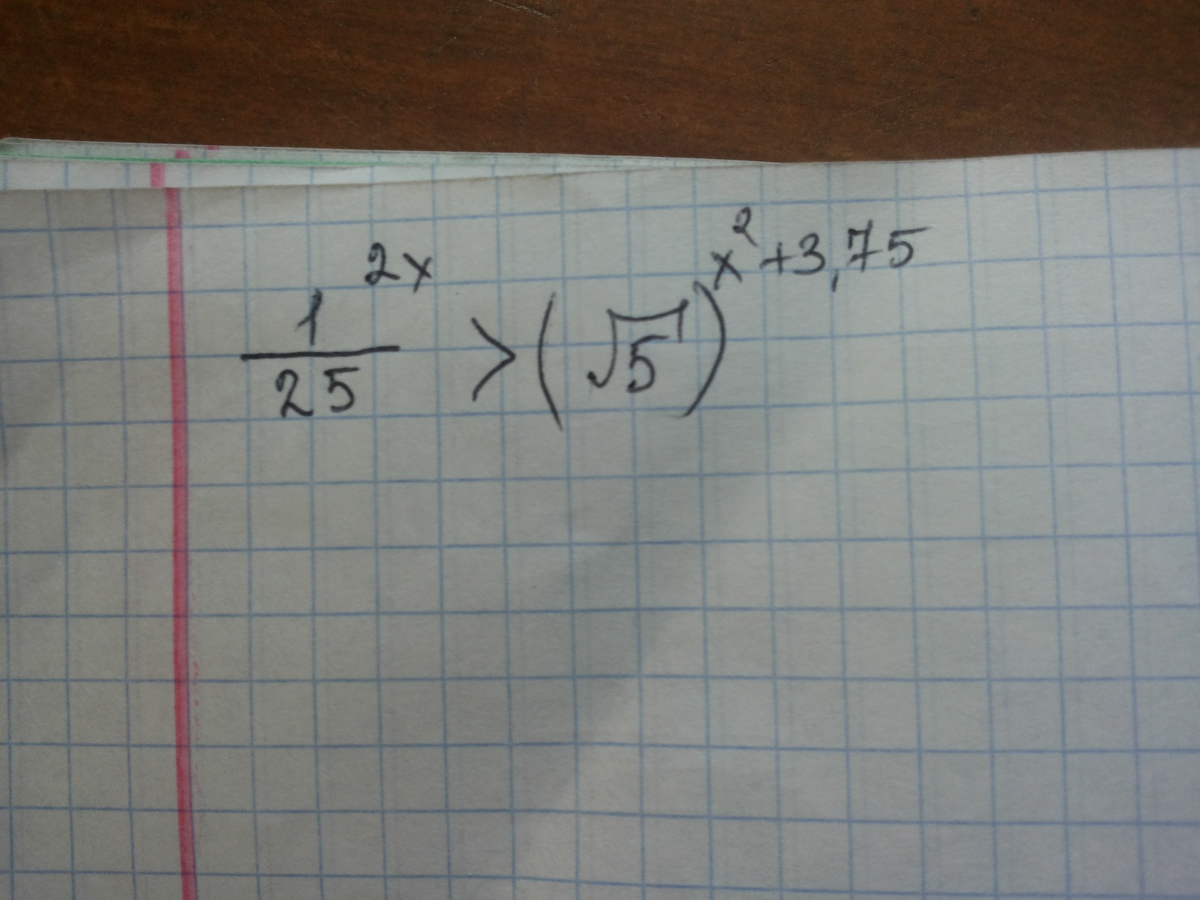 1/25^2x > (√5)^x^2+3,75